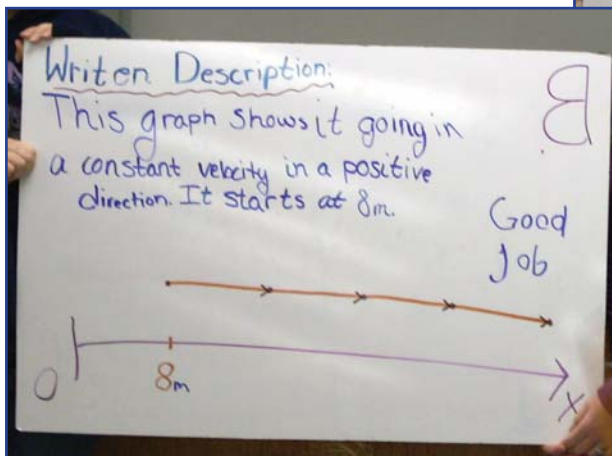 Writen Description:
This graph shows it going in
a constant velocity in a positive
direction. It starts at 8m.
B
Good
Job
0
8m
X